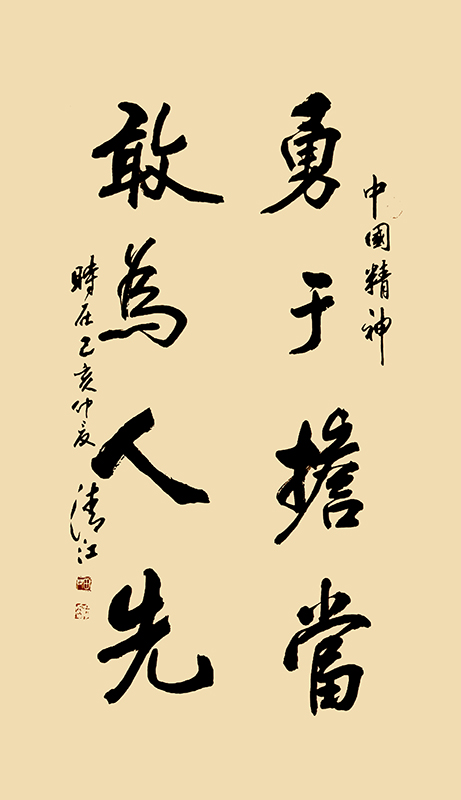 中國精神
勇于擔當
敢為人先
時在己亥仲夏
清江